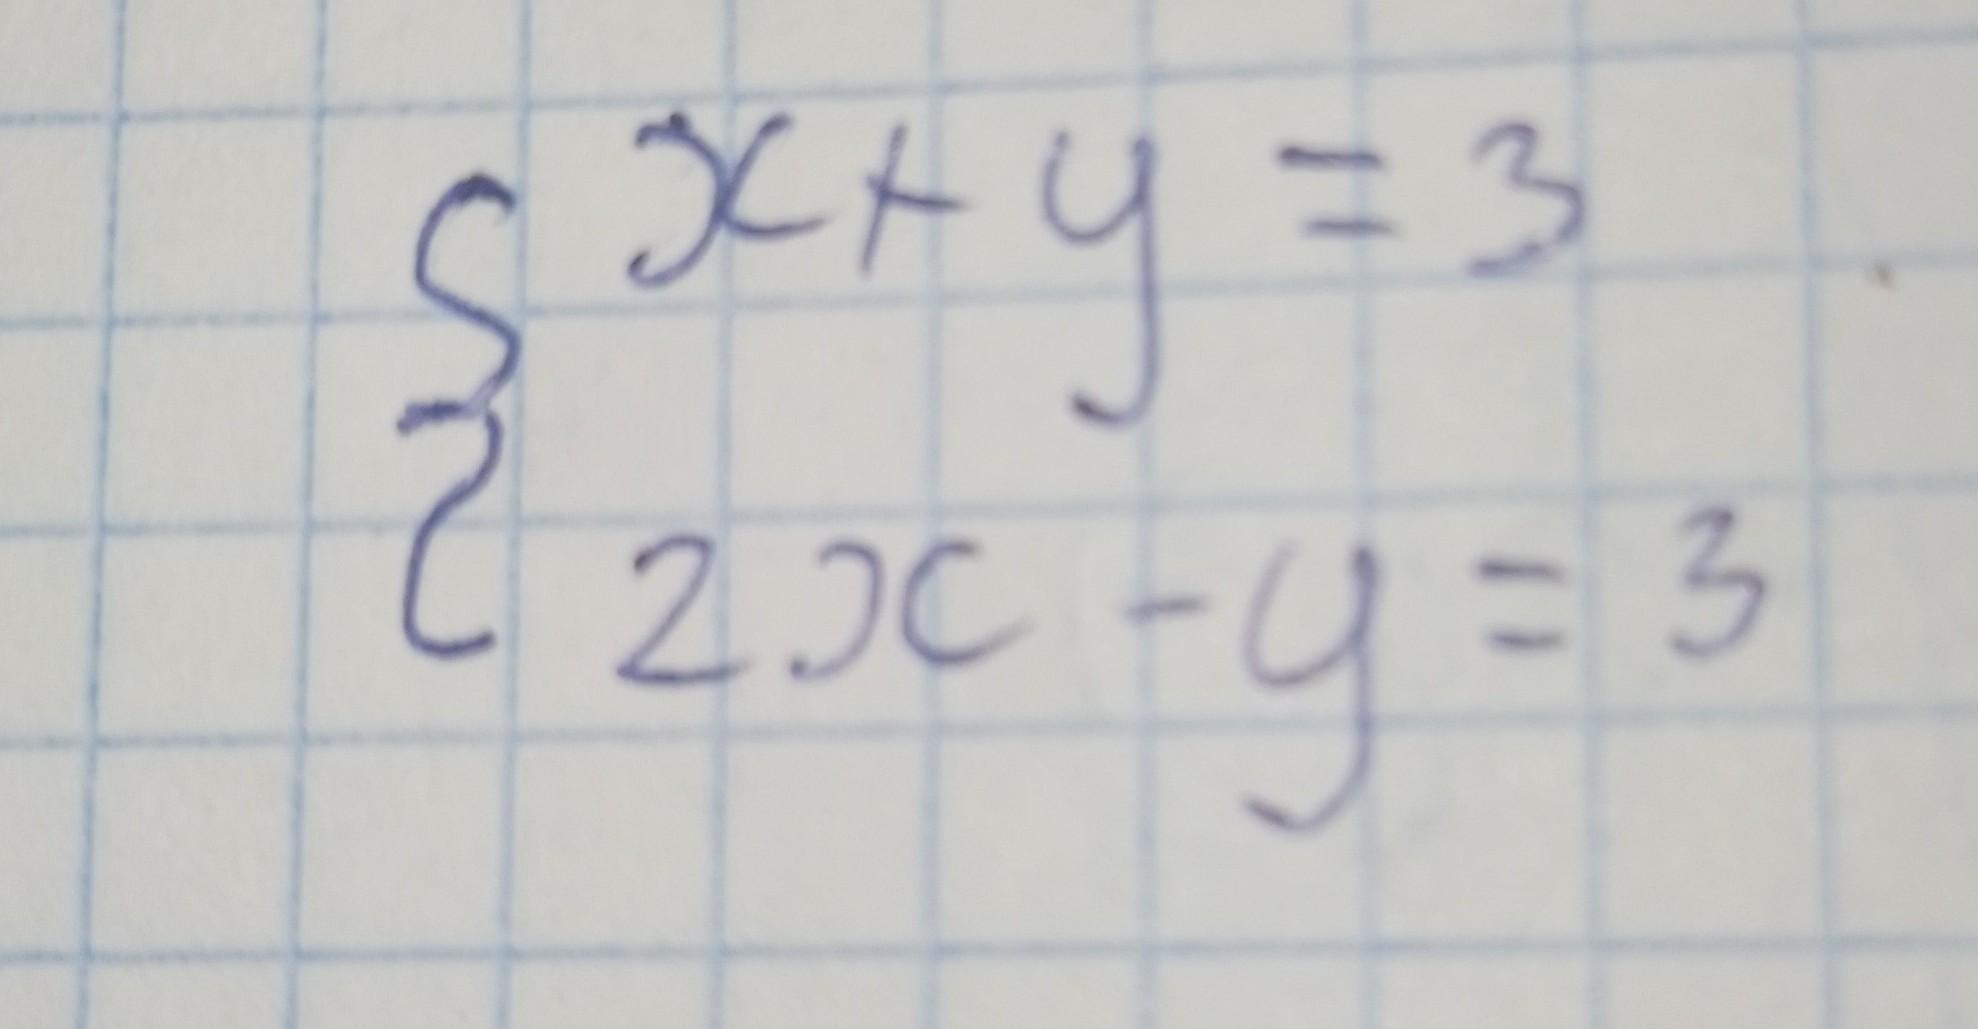 x + y = 3
2x - y = 3